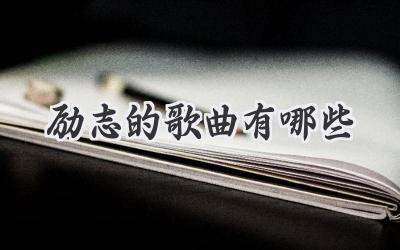 励志的歌曲有哪些